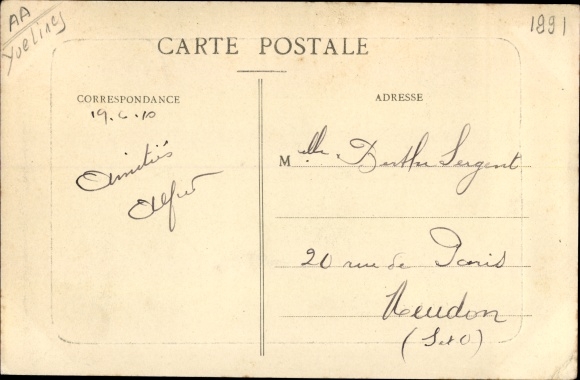 AA
Yvelines
1891
CARTE POSTALE
CORRESPONDANCE
19.6.10
Amitiés
Alfred
ADRESSE
Melle Berthe Sergent
20 rue de Paris
Meudon
(S et O)